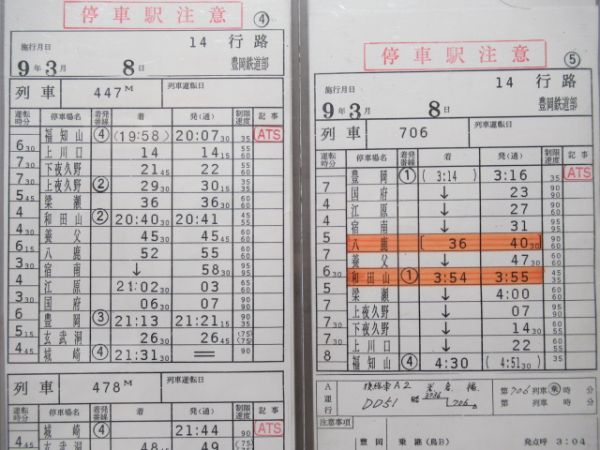 停車駅注意 ④
14 行路
施行月日
9年3月 8日 豊岡鉄道部
列車 447M 列車運転日
運転時分 停車場名 着発番線 着 発(通) 制限速度 記事
福知山 ④ (19:58) 20:07 30 35 ATS
6 30 上川口 14 14 15
7 下夜久野 21 45 22
7 上夜久野 ② 29 30 30 15
5 45 梁瀬 36 36 30
4 和田山 ② 20:40 30 20:41
4 30 養父 45 30 45 45
6 15 八鹿 52 55
宿南 ↓ 58 30
江原 21:02 30 03
国府 06 30 07
6 豊岡 ③ 21:13 21:21 15
5 15 玄武洞 26 30 26 45
4 45 城崎 ④ 21:31 30 =
列車 478M 列車運転日
運転時分 停車場名 着発番線 着 発(通) 制限速度 記事
城崎 ④ 21:44 ATS
4 45 玄武洞 48 45 49
停車駅注意 ⑤
14 行路
施行月日
9年3月 8日 豊岡鉄道部
列車 706 列車運転日
運転時分 停車場名 着発番線 着 発(通) 制限速度 記事
豊岡 ① (3:14) 3:16 35 ATS
7 国府 ↓ 23
4 江原 ↓ 27
4 宿南 ↓ 31
5 八鹿 [36 40 30]
7 養父 ↓ 47 30
6 30 和田山 ① 3:54 3:55
5 梁瀬 ↓ 4:00
7 上夜久野 ↓ 07
7 30 下夜久野 ↓ 14 30
上川口 ↓ 22
8 福知山 ④ 4:30 (4:51 30)
A運行
DD51
第706列車 時分
第 列車 時分
注意事項
豊岡 乗継(鳥B) 発点呼 3:04